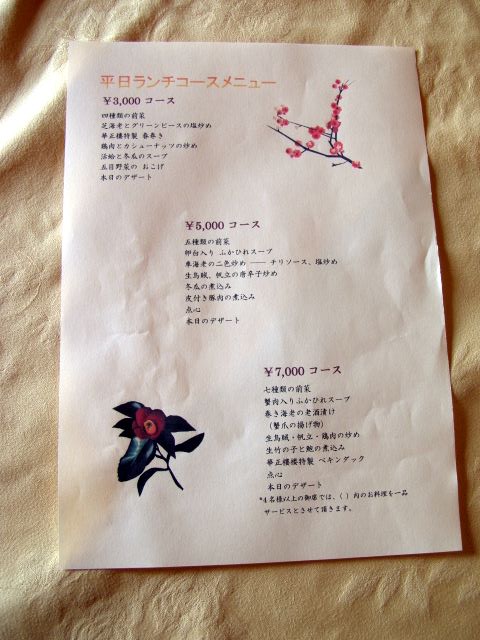 平日ランチコースメニュー
￥3,000 コース
四種類の前菜
芝海老とグリーンピースの塩炒め
華正樓特製 春巻き
鶏肉とカシューナッツの炒め
活蛤と冬瓜のスープ
五目野菜の おこげ
本日のデザート
￥5,000 コース
五種類の前菜
卵白入り ふかひれスープ
車海老の二色炒め ―― チリソース、塩炒め
生烏賊、帆立の唐辛子炒め
冬瓜の煮込み
皮付き豚肉の煮込み
点心
本日のデザート
￥7,000 コース
七種類の前菜
蟹肉入りふかひれスープ
巻き海老の老酒漬け
（蟹爪の揚げ物）
生烏賊・帆立・鶏肉の炒め
生竹の子と鮑の煮込み
華正樓樓特製 ペキンダック
点心
本日のデザート
*4名様以上の御席では、( ) 内のお料理を一品
サービスとさせて頂きます。